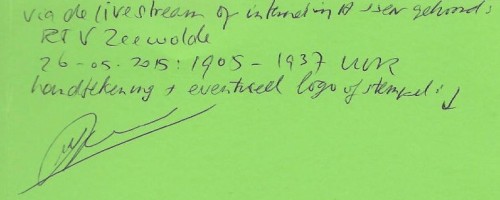 via de livestream of internet in gehoord:
RTV Zeewolde
26-05-2015: 1905 - 1937 uur
handtekening + eventueel logo of stempel: